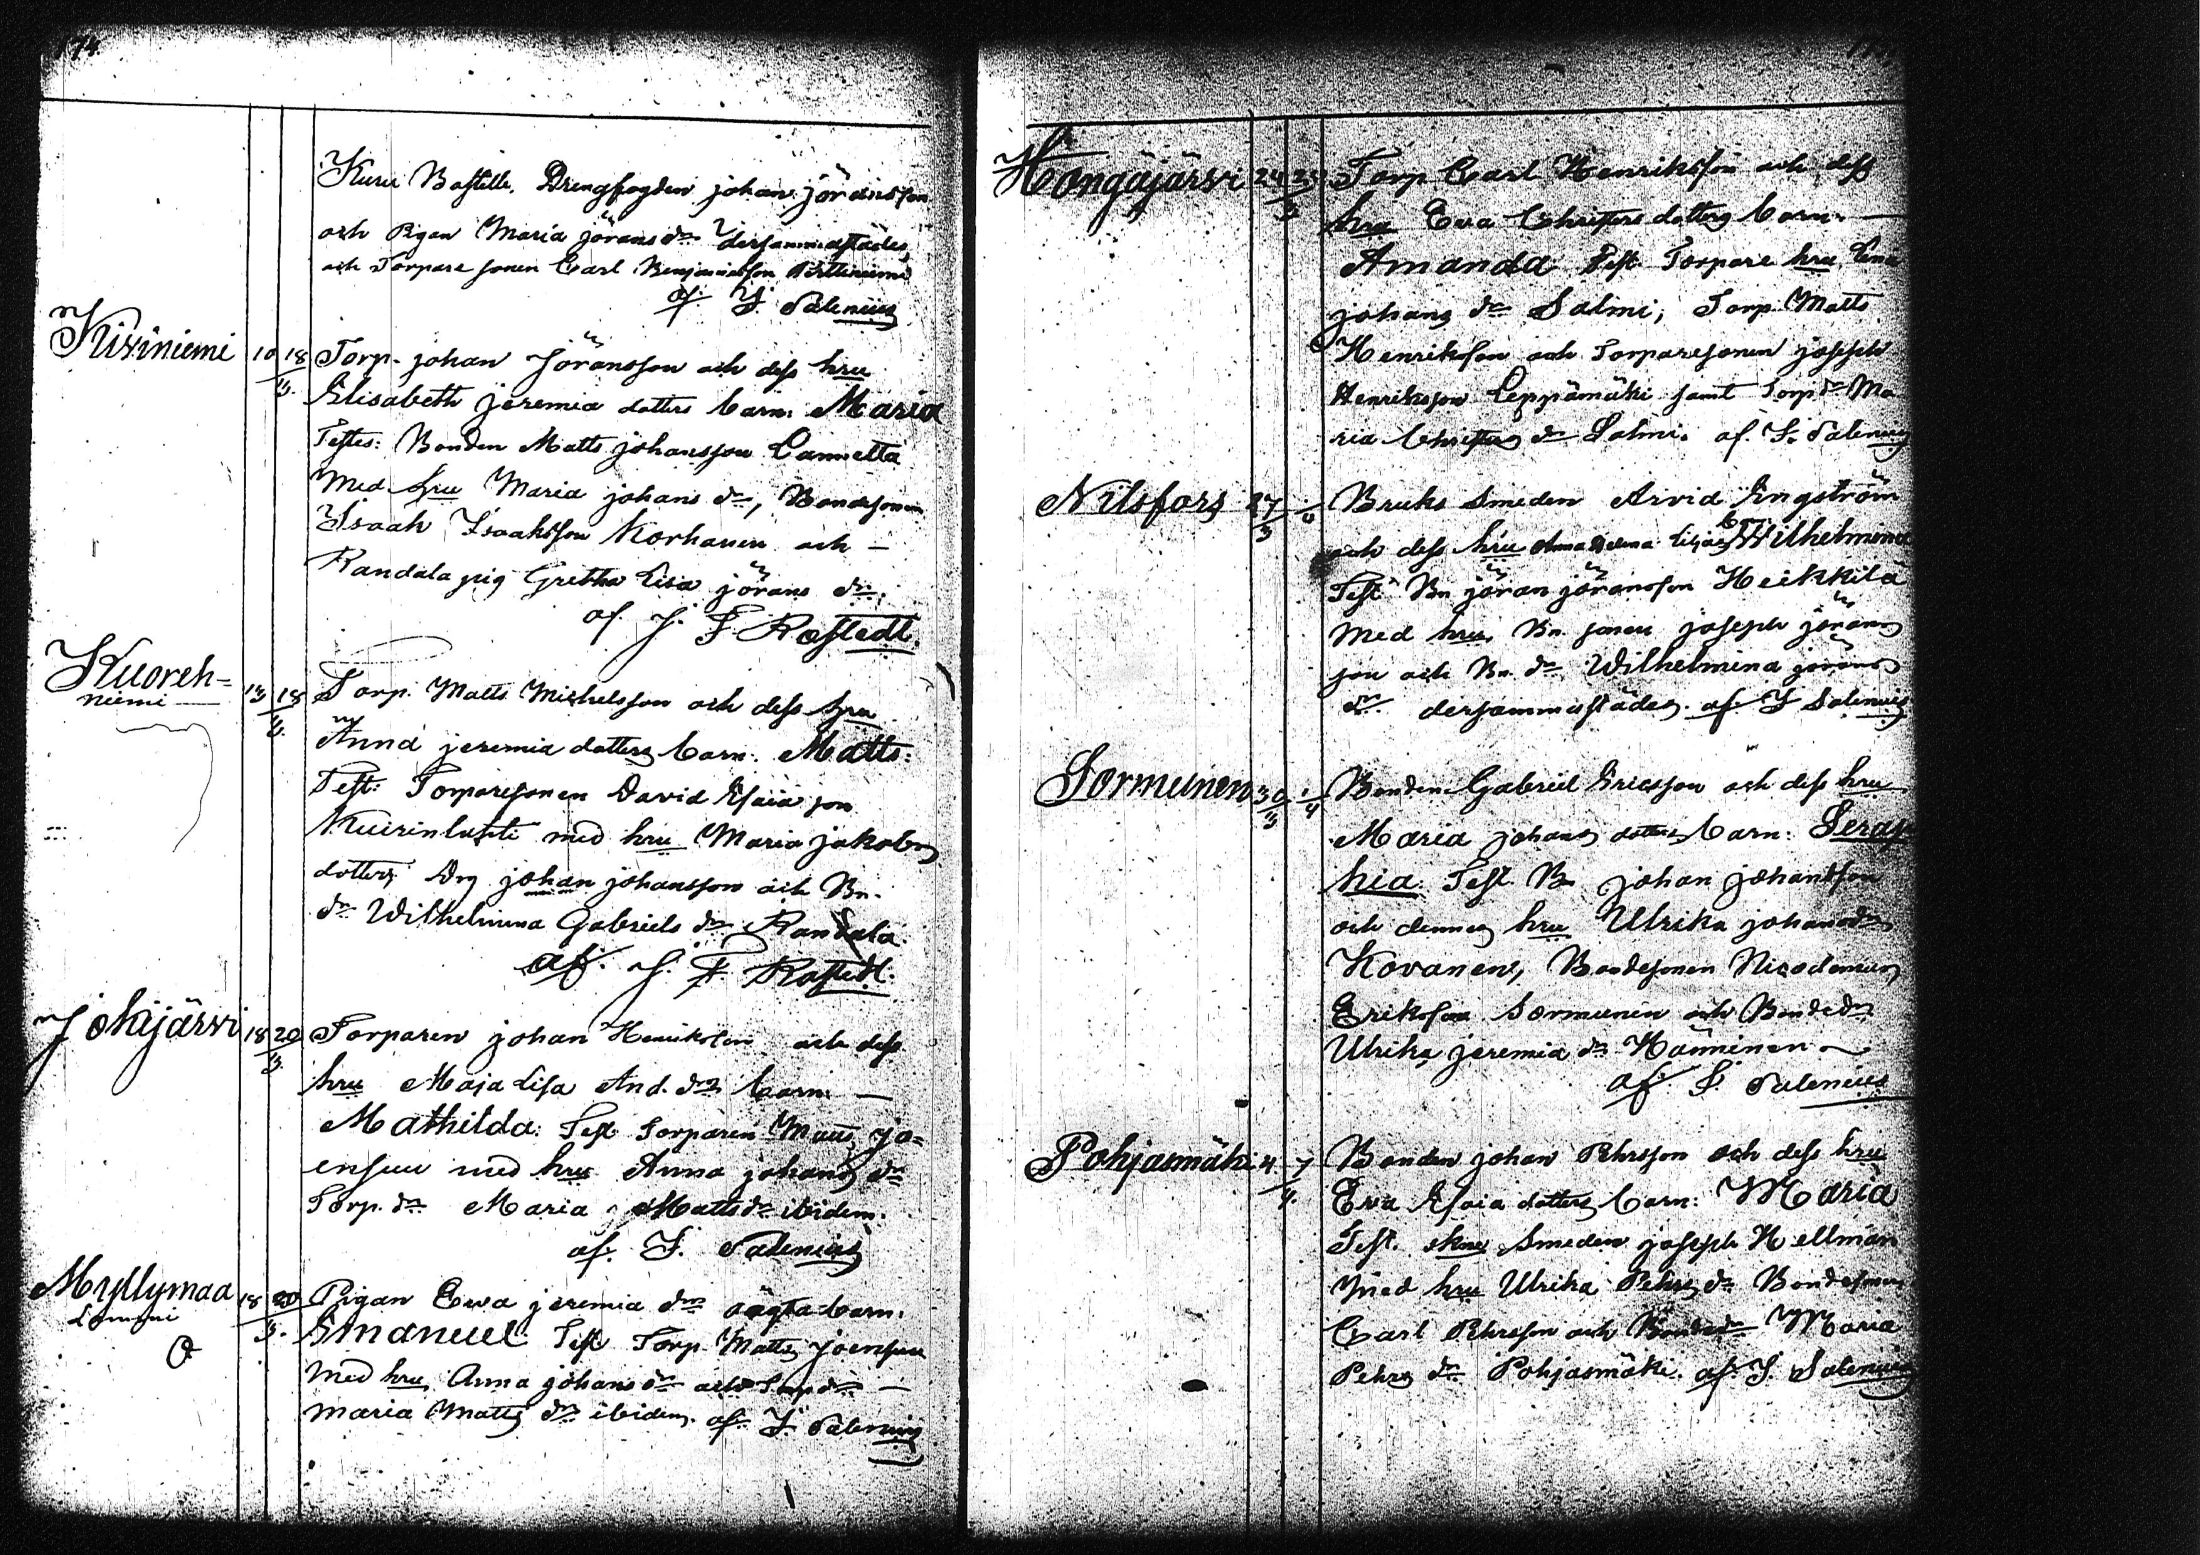 174.
Kuru Bostelle, Drengfogden johan jöransson
och Pigan Maria jörans dr dersammastädes
och Torpare sonen Carl Benjaminsson
af. J. Salenius
Kiviniemi 10 18/3. Torp. johan Jöransson och dess hru
Elisabeth jeremia dotters barn: Maria
Testes: Bonden Matts johansson Lannetta
Med hru Maria johans dr, Bondesonen
Isaak Isaaksson Korhonen och –
Randala pig Gretha Lisa jörans dr.
af. J. F. Rostedt.
Kuoreh= 13 18/3. Torp. Matts Michelsson och dess hru
niemi — Anna jeremia dotters barn. Matts:
Test: Torparesonen David Esaiason
Kuirinlahti med hru Maria jakobs
dotter, Drg johan johansson och Bn.
dr Wilhelmina Gabriels dr Randala.
af. J. F. Rostedt.
Jokijärvi 18 20/3. Torparen johan Henriksson och dess
hru Maja Lisa And. drs barn —
Mathilda: Test Torparen Matts Jo=
ensuu med hru Anna johans dr
Torp. dr Maria Matts dr ibidem.
af. J. Salenius
Myllymaa 18 20/3. Pigan Ewa jeremia drs oägta barn.
Emanuel. Test Torp. Matts Joensuu
Med hru, Anna johans dr och Torp dr —
Maria Matts dr ibidem. af. J. Salenius
Höngäjärvi 24 25/3 Torp Carl Henriksson och dess
hru Eva Christers dotters barn. —
Amanda Test Torpare hru, Lena
johans dr Salmi, Torp. Matts
Henriksson och Torparesonen joseph
Henriksson Leppämäki samt Torp dr Ma
ria Christers dr Salmi. af. J. Salenius
Nilsfors 27/3 Bruks Smeden Arvid Engström
och dess hru Anna Helena Liljas barn Wilhelmina
Test Bn jöran jöransson Heikkilä
med hru, Bn. sonen joseph jörans
son och Bn. dr Wilhelmina jörans
dr. dersammastädes. af J Salenius
Sormunen 30/3 1/4 Bonden Gabriel Ericsson och dess hru
Maria johans dotters barn: Serap
hia. Test. Bn johan johansson
och dennes hru Ulrika johans dr
Kovanen, Bondesonen Nicodemus
Eriksson Sormunen och Bonde dr
Ulrika jeremia dr Hänninen –
af. J. Salenius
Pohjasmäki 4. 7/4. Bonden johan Pehrsson och dess hru
Eva Esaia dotters barn: Maria
Test. Smeden joseph Hellman
med hru Ulrika Pehrs dr Bondesonen
Carl Pehrsson och Bonde dr Maria
Pehrs dr Pohjasmäki. af. J. Salenius